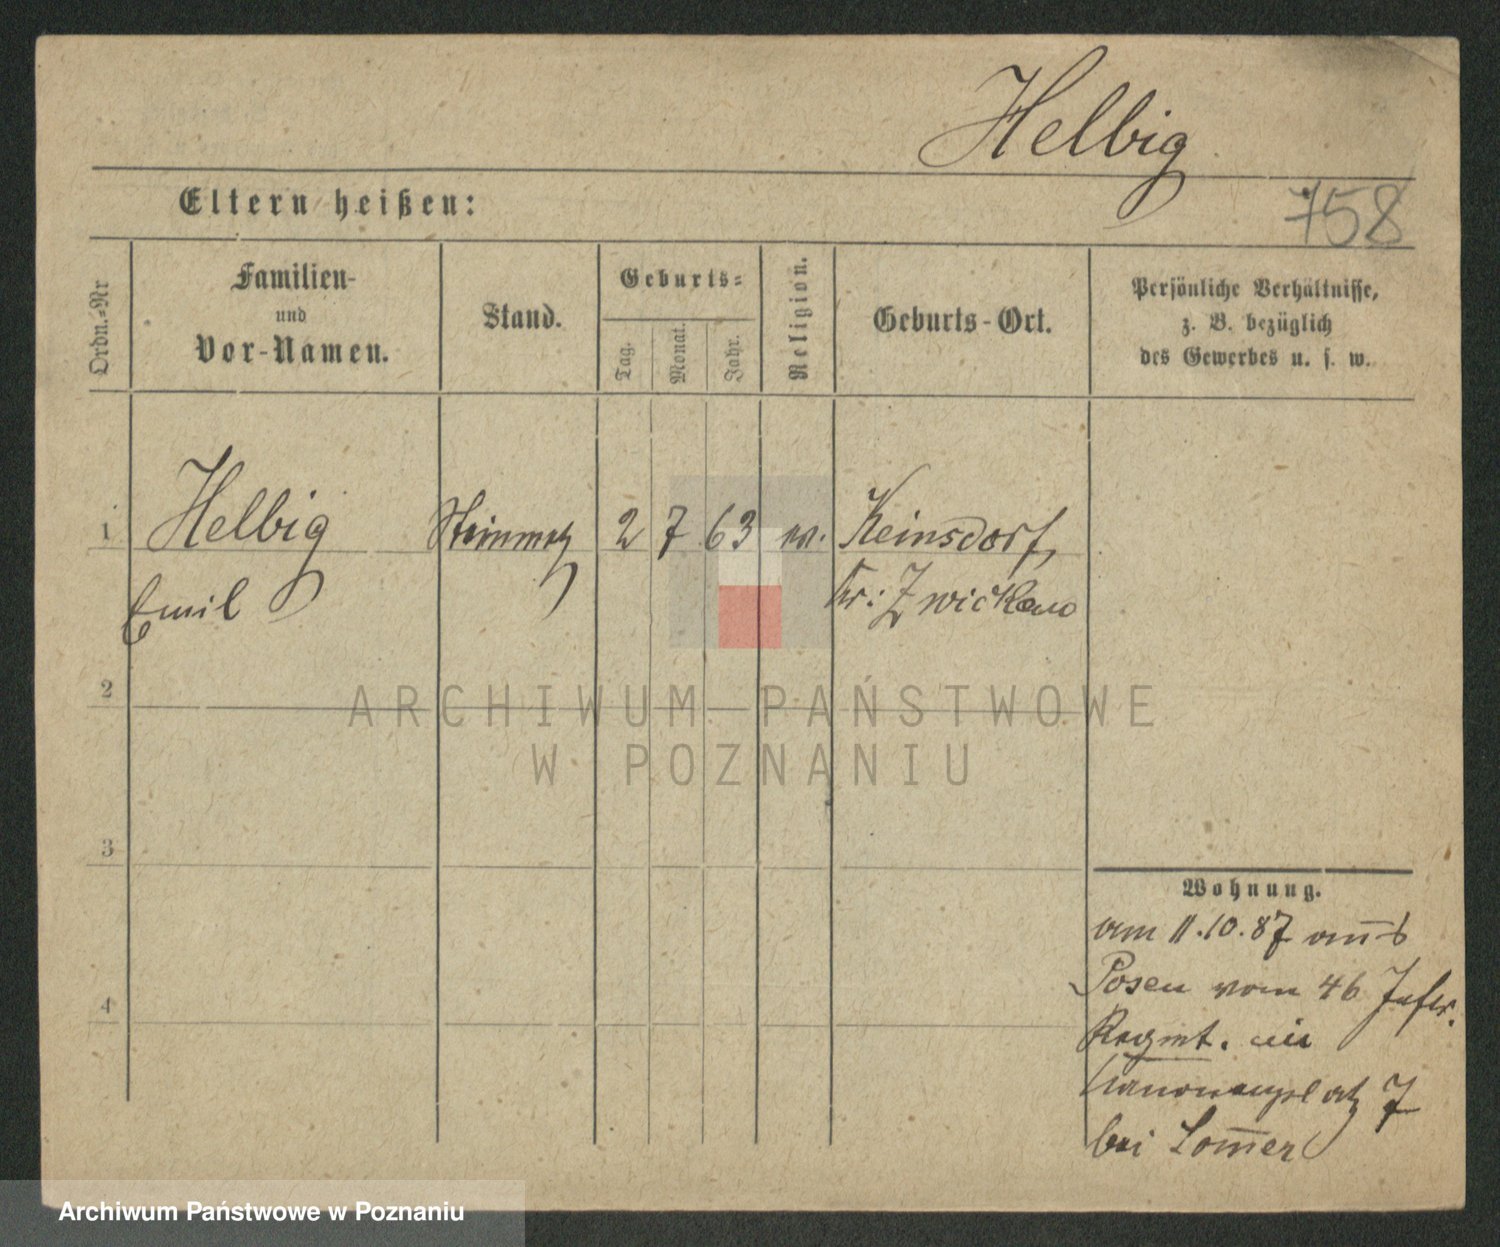 Helbig
758
Eltern heißen:
Ordn.-Nr
Familien-
und
Vor-Namen.
Stand.
Geburts-
Tag.
Monat.
Jahr.
Religion.
Geburts-Ort.
Persönliche Verhältnisse,
z. B. bezüglich
des Gewerbes u. s. w.
1
Helbig
Emil
Steinmetz
2
7
63
ev.
Keinsdorf,
Kr: Zwickau
2
3
4
ARCHIWUM PAŃSTWOWE
W POZNANIU
Wohnung.
am 11.10.87
Posen vom 46 Inftr.
Regmt.
Kanonenplatz 7
bei Lom̅er
Archiwum Państwowe w Poznaniu